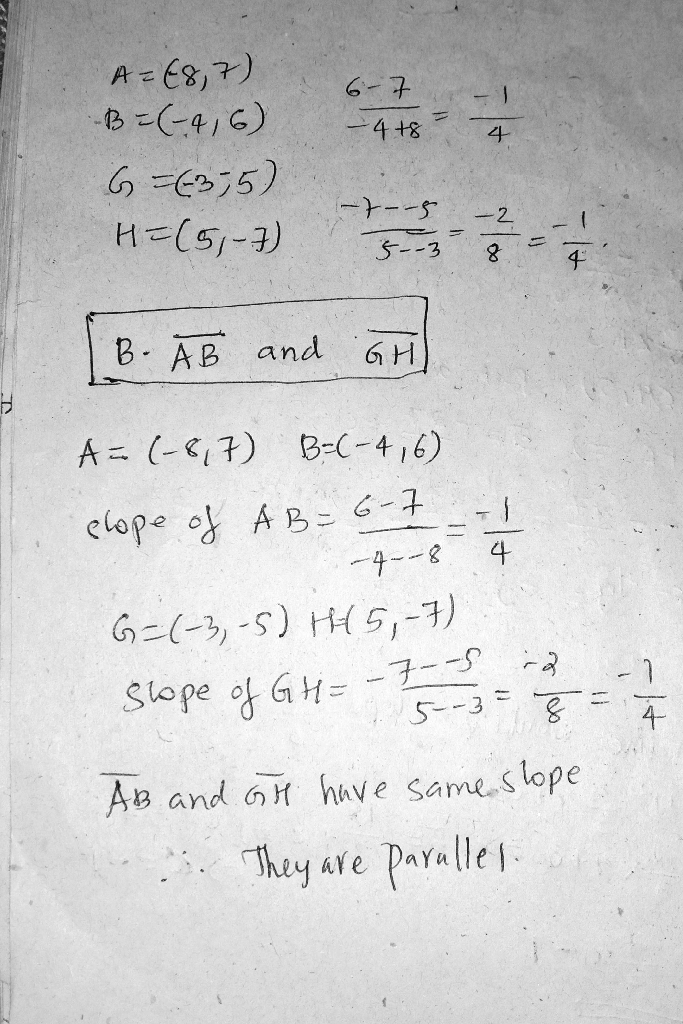 A=(-8,7)
6-7/-4+8 = -1/4
B=(-4,6)
G=(-3,-5)
H=(5,-7)
-7--5/5--3 = -2/8 = -1/4.
B. AB and GH
A= (-8,7) B=(-4,6)
slope of AB= 6-7/-4--8 = -1/4
G=(-3,-5) H=(5,-7)
slope of GH= -7--5/5--3 = -2/8 = -1/4
AB and GH have same slope
∴ They are parallel.